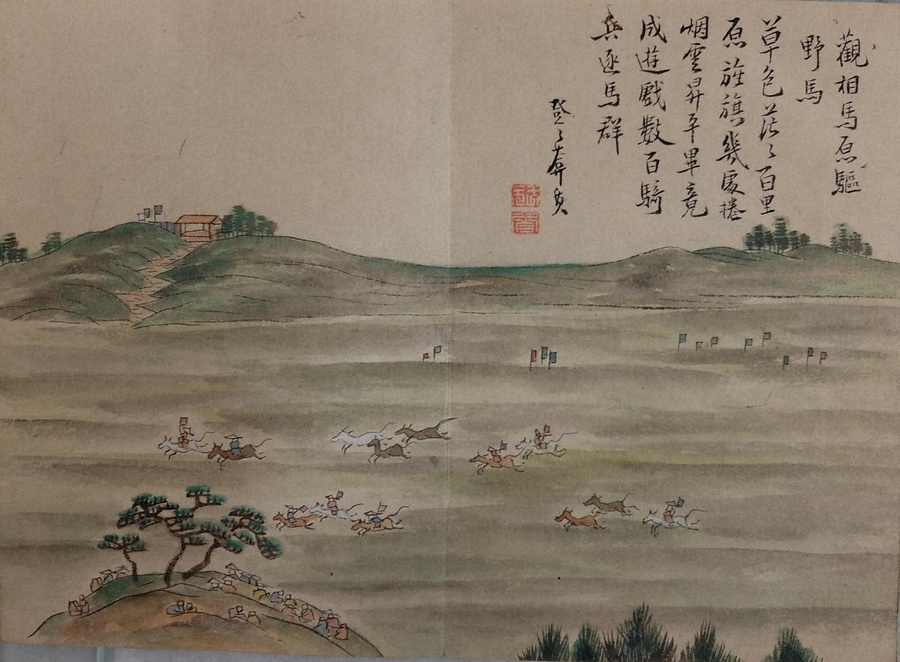 觀相馬原驅
野馬
草色茫〻百里
原旌旗幾處捲
烟雲昇平畢竟
成遊戲數百騎
兵逐馬群